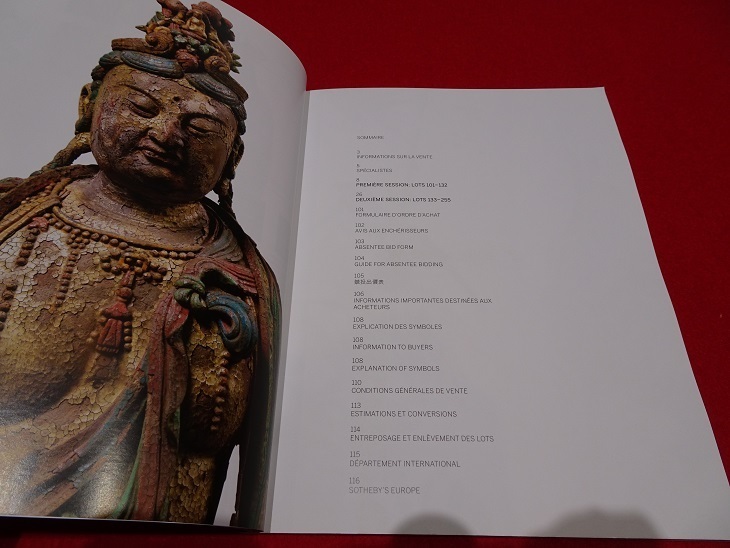 SOMMAIRE
3
INFORMATIONS SUR LA VENTE
5
SPÉCIALISTES
8
PREMIÈRE SESSION: LOTS 101–132
26
DEUXIÈME SESSION: LOTS 133–255
101
FORMULAIRE D'ORDRE D'ACHAT
102
AVIS AUX ENCHÉRISSEURS
103
ABSENTEE BID FORM
104
GUIDE FOR ABSENTEE BIDDING
105
106
INFORMATIONS IMPORTANTES DESTINÉES AUX
ACHETEURS
108
EXPLICATION DES SYMBOLES
108
INFORMATION TO BUYERS
108
EXPLANATION OF SYMBOLS
110
CONDITIONS GÉNÉRALES DE VENTE
113
ESTIMATIONS ET CONVERSIONS
114
ENTREPOSAGE ET ENLÈVEMENT DES LOTS
115
DÉPARTEMENT INTERNATIONAL
116
SOTHEBY'S EUROPE